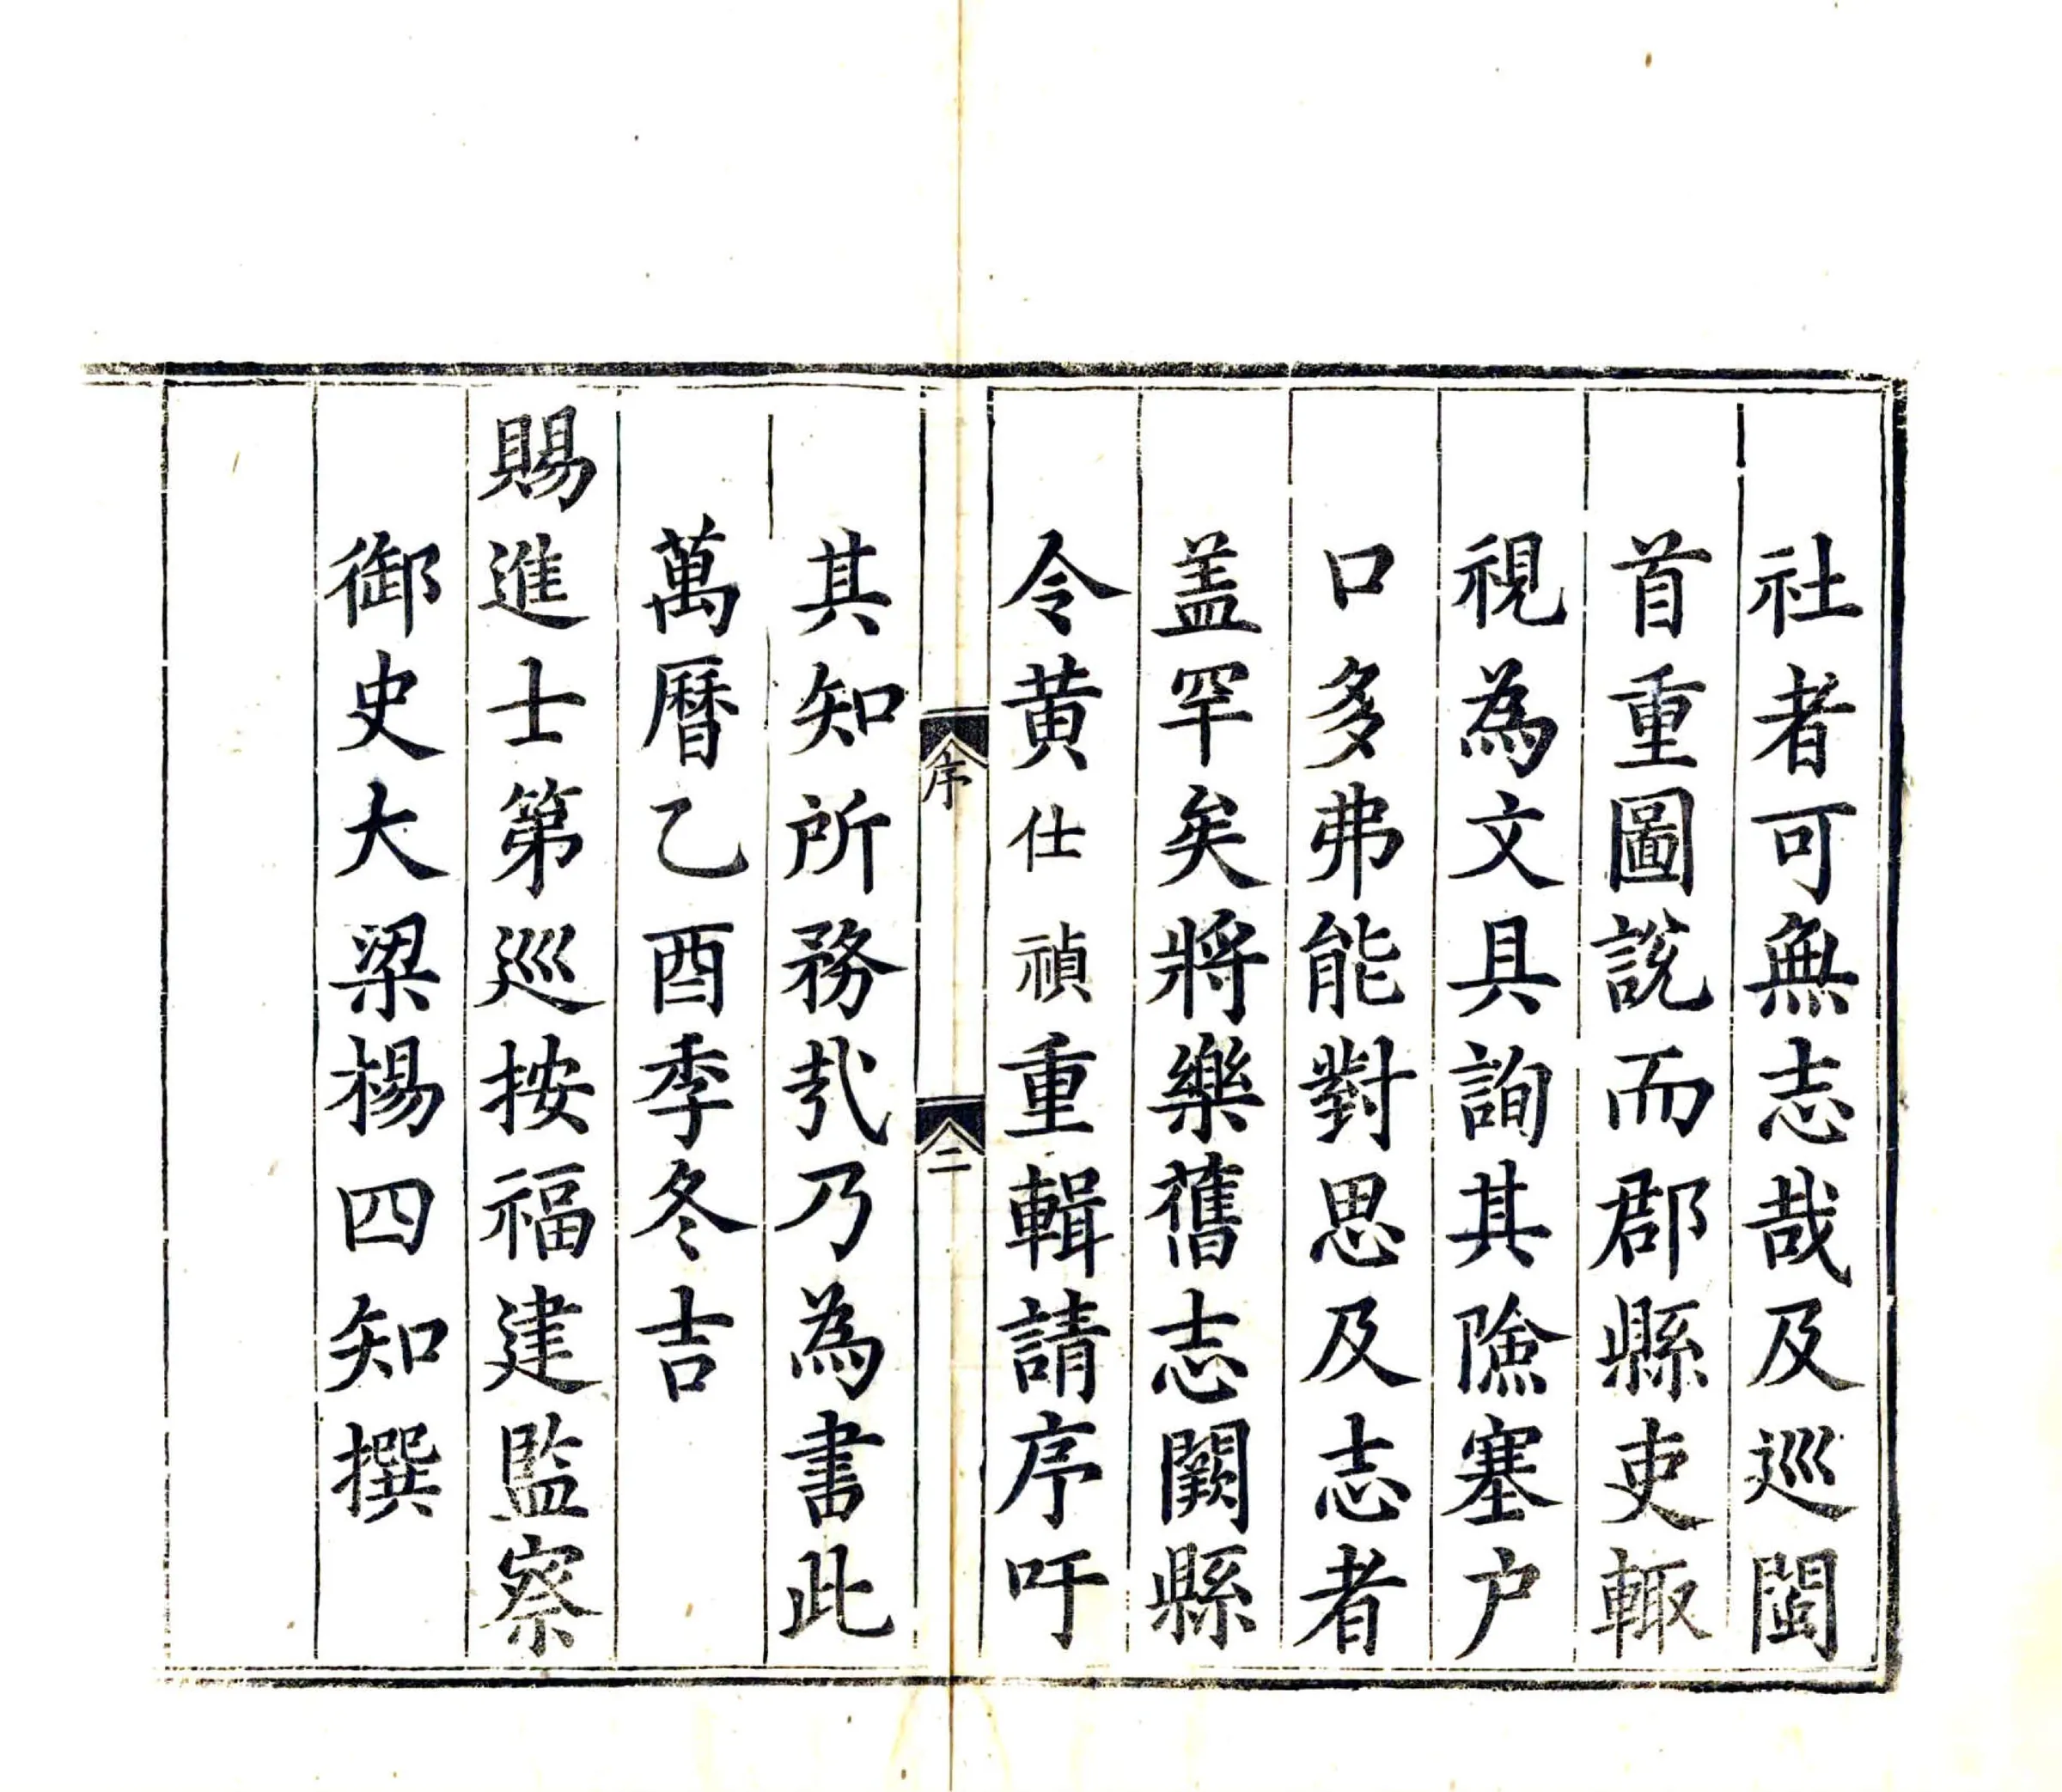 社者可無志哉及巡閩
首重圖說而郡縣吏輙
視為文具詢其險塞户
口多弗能對思及志者
盖罕矣將樂舊志闕縣
令黄仕禎重輯請序吁
序
二
其知所務哉乃為書此
萬曆乙酉季冬吉
賜進士第巡按福建監察
御史大梁楊四知撰